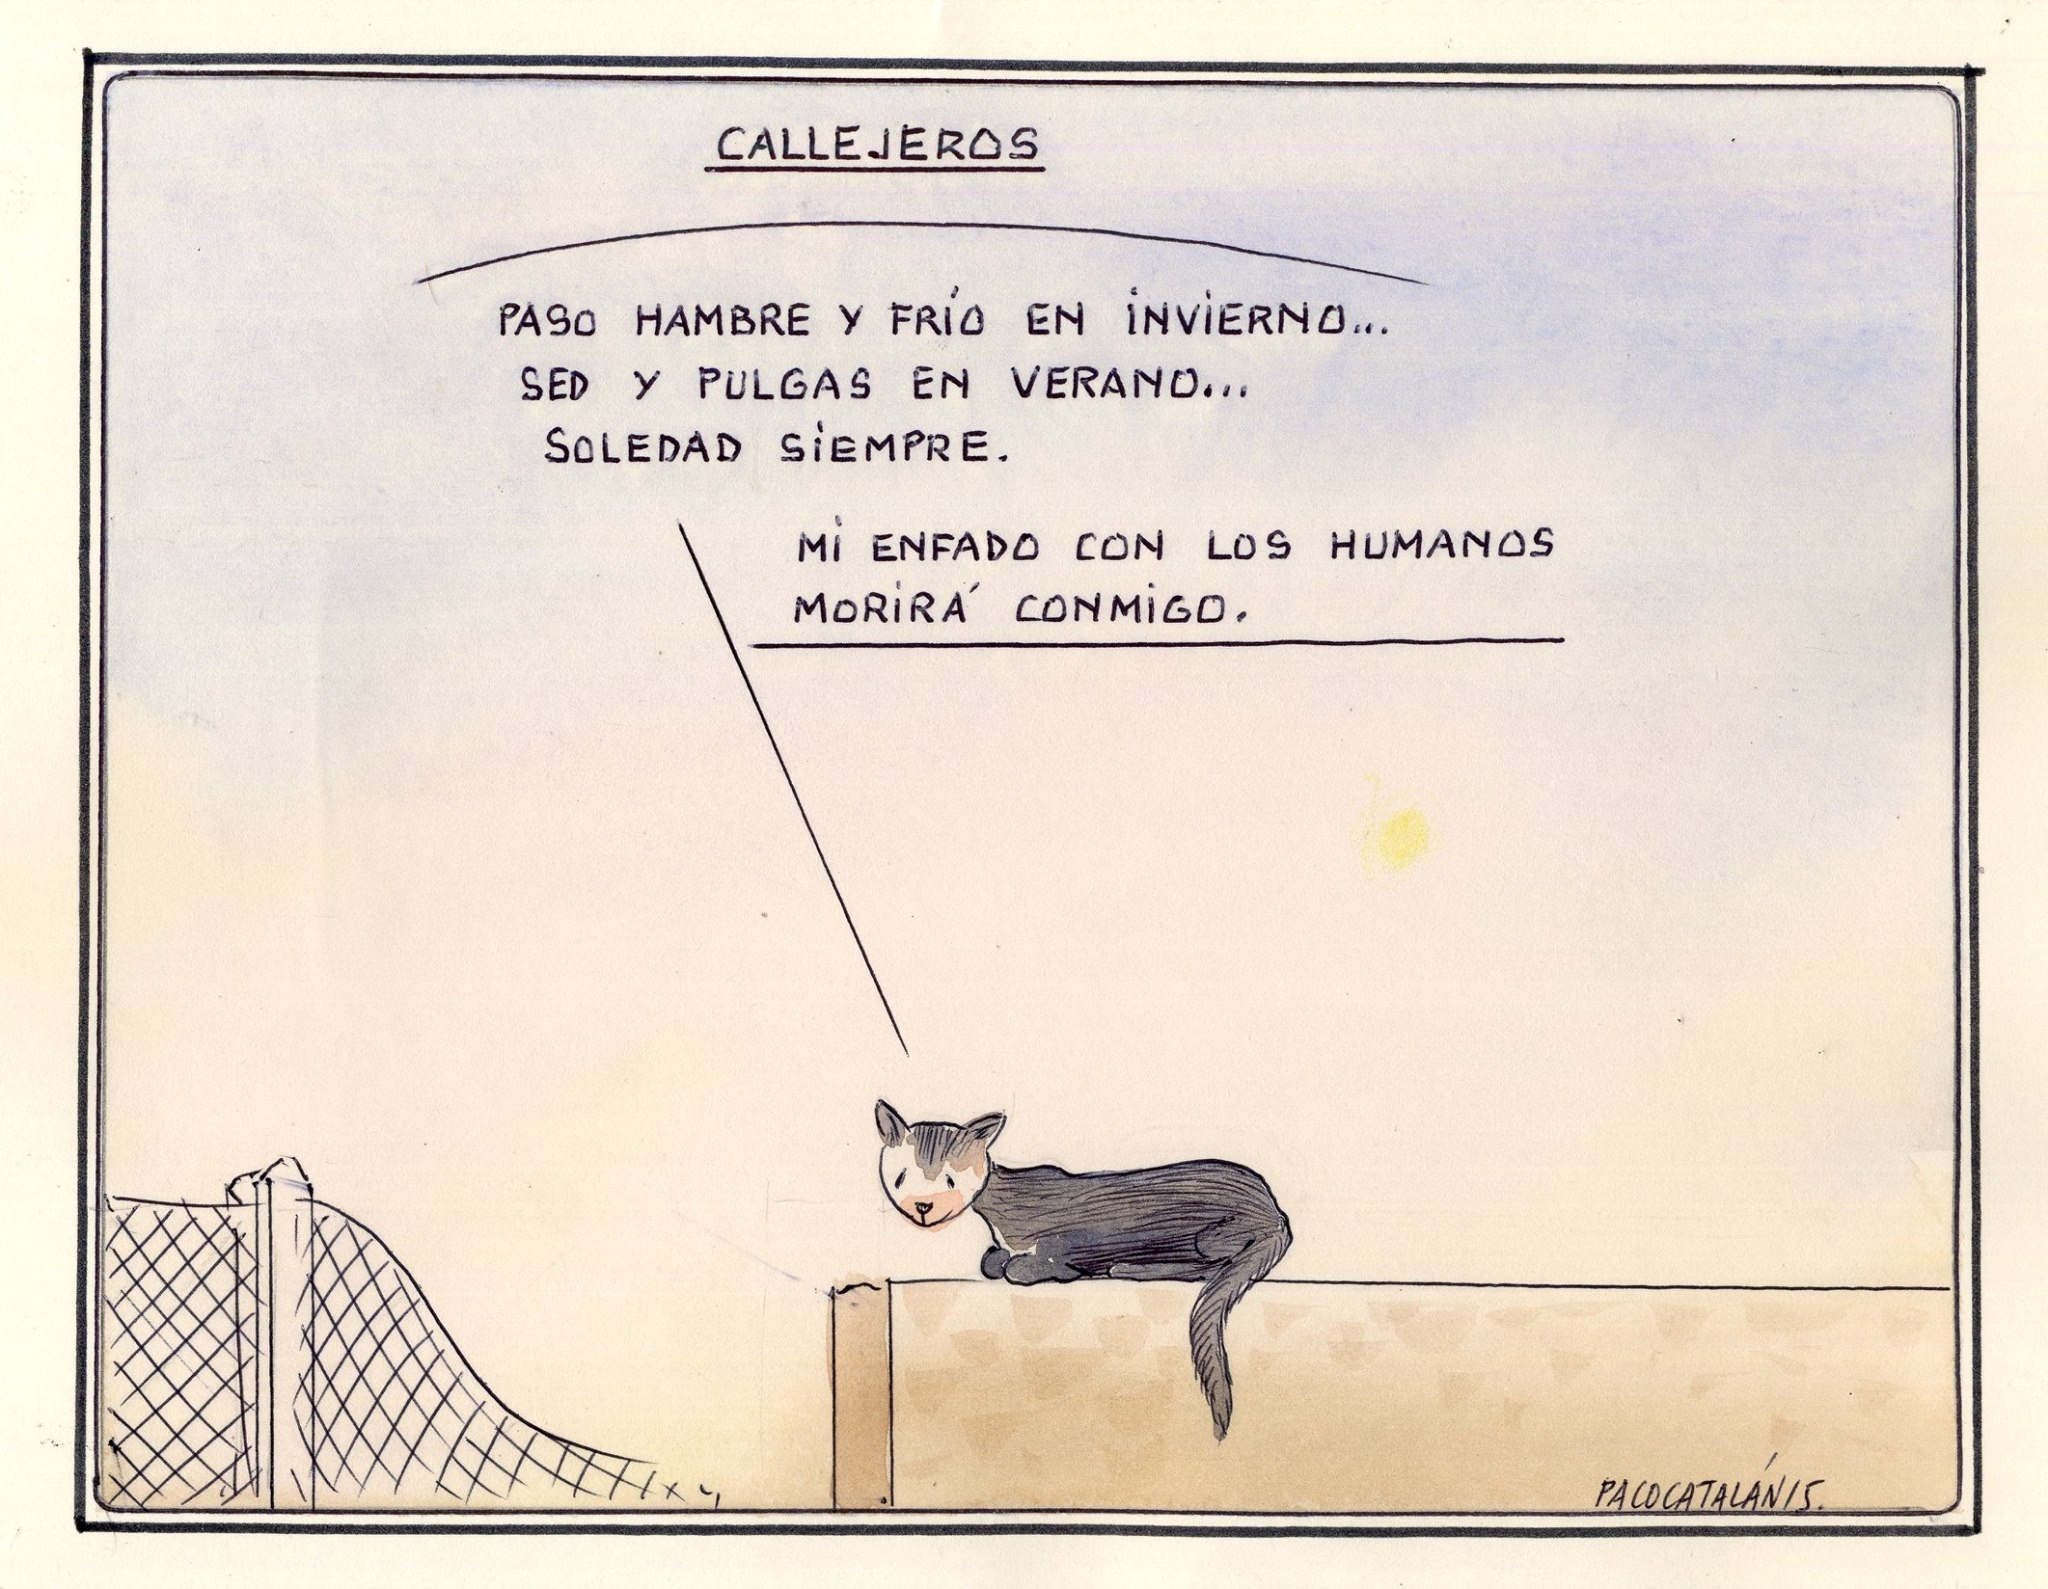 CALLEJEROS
PASO HAMBRE Y FRÍO EN INVIERNO...
SED Y PULGAS EN VERANO...
SOLEDAD SIEMPRE.
MI ENFADO CON LOS HUMANOS
MORIRÁ CONMIGO.
PACOCATALÁN15.